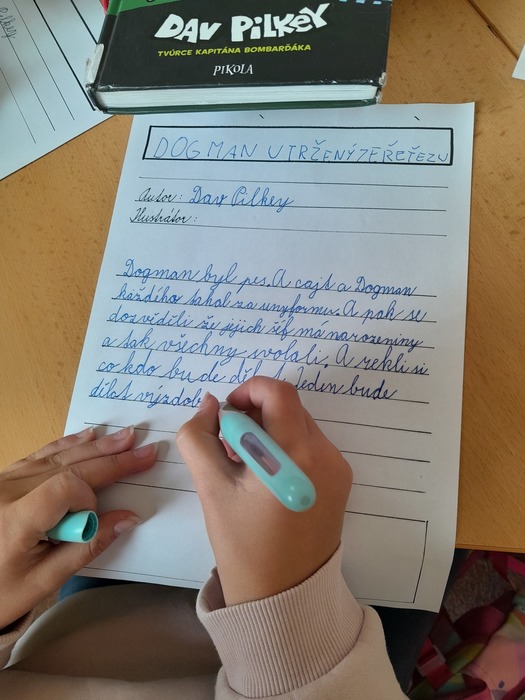 DAV PILKEY
TVŮRCE KAPITÁNA BOMBARĎÁKA
PIKOLA
Pilkey
DOGMAN UTRŽENÝ Z ŘEŤEZU
Autor: Dav Pilkey
Ilustrátor:
Dogman byl pes. A cajt a Dogman
každého tahal za unyformu. A pak se
dozviděli že jejich šéf má narozeniny
a tak všechny svolali. A rekli si
co kdo bude děl Jeden bude
dělat výzdob